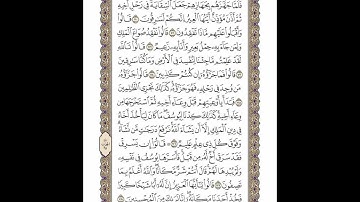 فَلَمَّا جَهَّزَهُم بِجَهَازِهِمْ جَعَلَ ٱلسِّقَايَةَ فِي رَحْلِ أَخِيهِ
ثُمَّ أَذَّنَ مُؤَذِّنٌ أَيَّتُهَا ٱلْعِيرُ إِنَّكُمْ لَسَٰرِقُونَ ۝٧٠ قَالُوا۟
وَأَقْبَلُوا۟ عَلَيْهِم مَّاذَا تَفْقِدُونَ ۝٧١ قَالُوا۟ نَفْقِدُ صُوَاعَ ٱلْمَلِكِ
وَلِمَن جَآءَ بِهِۦ حِمْلُ بَعِيرٍ وَأَنَا۠ بِهِۦ زَعِيمٌ ۝٧٢ قَالُوا۟ تَٱللَّهِ
لَقَدْ عَلِمْتُم مَّا جِئْنَا لِنُفْسِدَ فِي ٱلْأَرْضِ وَمَا كُنَّا سَٰرِقِينَ
۝٧٣ قَالُوا۟ فَمَا جَزَٰٓؤُهُۥٓ إِن كُنتُمْ كَٰذِبِينَ ۝٧٤ قَالُوا۟ جَزَٰٓؤُهُۥ
مَن وُجِدَ فِي رَحْلِهِۦ فَهُوَ جَزَٰٓؤُهُۥ كَذَٰلِكَ نَجْزِي ٱلظَّٰلِمِينَ
۝٧٥ فَبَدَأَ بِأَوْعِيَتِهِمْ قَبْلَ وِعَآءِ أَخِيهِ ثُمَّ ٱسْتَخْرَجَهَا مِن
وِعَآءِ أَخِيهِ كَذَٰلِكَ كِدْنَا لِيُوسُفَ مَا كَانَ لِيَأْخُذَ أَخَاهُ
فِي دِينِ ٱلْمَلِكِ إِلَّآ أَن يَشَآءَ ٱللَّهُ نَرْفَعُ دَرَجَٰتٍ مَّن نَّشَآءُ
وَفَوْقَ كُلِّ ذِي عِلْمٍ عَلِيمٌ ۝٧٦ قَالُوٓا۟ إِن يَسْرِقْ
فَقَدْ سَرَقَ أَخٌ لَّهُۥ مِن قَبْلُ فَأَسَرَّهَا يُوسُفُ فِي نَفْسِهِۦ
وَلَمْ يُبْدِهَا لَهُمْ قَالَ أَنتُمْ شَرٌّ مَّكَانًا وَٱللَّهُ أَعْلَمُ بِمَا
تَصِفُونَ ۝٧٧ قَالُوا۟ يَٰٓأَيُّهَا ٱلْعَزِيزُ إِنَّ لَهُۥٓ أَبًا شَيْخًا كَبِيرًا
فَخُذْ أَحَدَنَا مَكَانَهُۥٓ إِنَّا نَرَىٰكَ مِنَ ٱلْمُحْسِنِينَ ۝٧٨